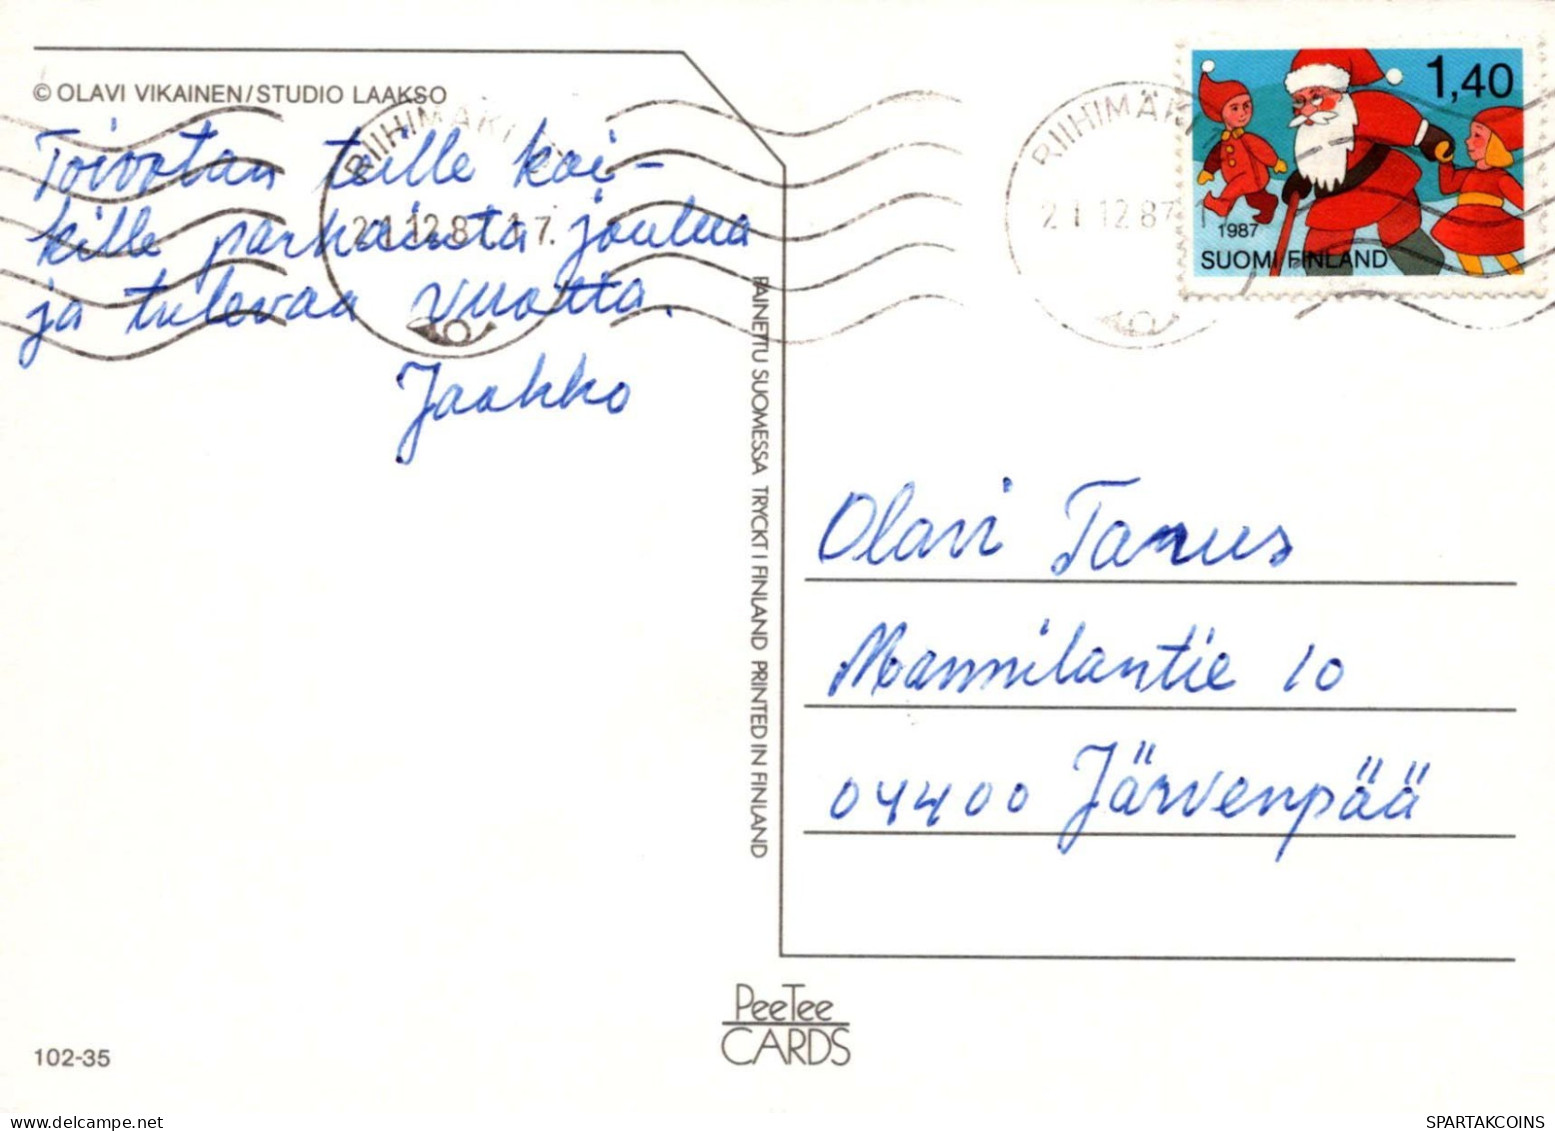 © OLAVI VIKAINEN/STUDIO LAAKSO
Toivotan teille kai-
kille parhainta joulua
ja tulevaa vuotta.
Jaakko
RIIHIMÄKI
21.12.87 17.
RIIHIMÄKI
21 12 87 1
1,40
1987
SUOMI FINLAND
PAINETTU SUOMESSA TRYCKT I FINLAND PRINTED IN FINLAND
Olavi Tanus
Mannilantie 10
04400 Järvenpää
PeeTee
CARDS
102-35
SPARTAKCOINS